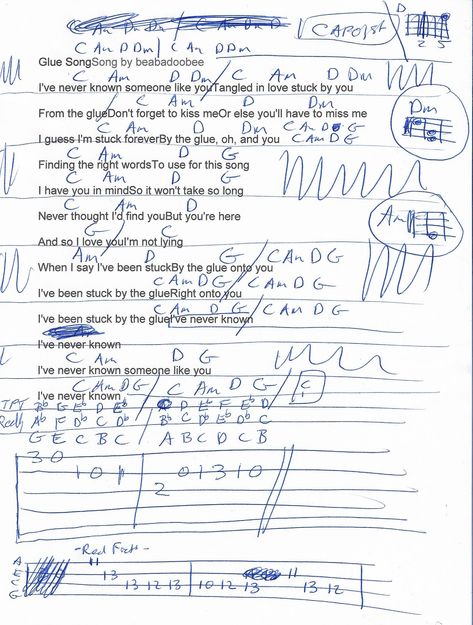 C Am D Dm / C Am D Dm
CAPO 1st
D
2 5
Glue SongSong by beabadoobee
C Am D Dm / C Am D Dm
I've never known someone like youTangled in love stuck by you
C Am D Dm
From the glueDon't forget to kiss meOr else you'll have to miss me
Dm
C Am D Dm C Am D G
I guess I'm stuck foreverBy the glue, oh, and you C Am D G
C Am D G
Finding the right wordsTo use for this song
C Am D G
I have you in mindSo it won't take so long
C Am D
Never thought I'd find youBut you're here
Am
G C
And so I love youI'm not lying
Am D G / C Am D G
When I say I've been stuckBy the glue onto you
C Am D G / C Am D G
I've been stuck by the glueRight onto you
C Am D G / C Am D G
I've been stuck by the glueI've never known
I've never known
C Am D G
I've never known someone like you
C Am D G / C Am D G / C
I've never known
TPT Bb G Eb D Eb / D Eb F Eb D
Really Ab F Db C Db / Bb C Db Eb Db C
G E C B C / A B C D C B
3 0
1 0 1 0 1 3 1 0
2
-Red Frets-
A
E
C
G
11 11
13 13 12 13 10 12 13 13 12